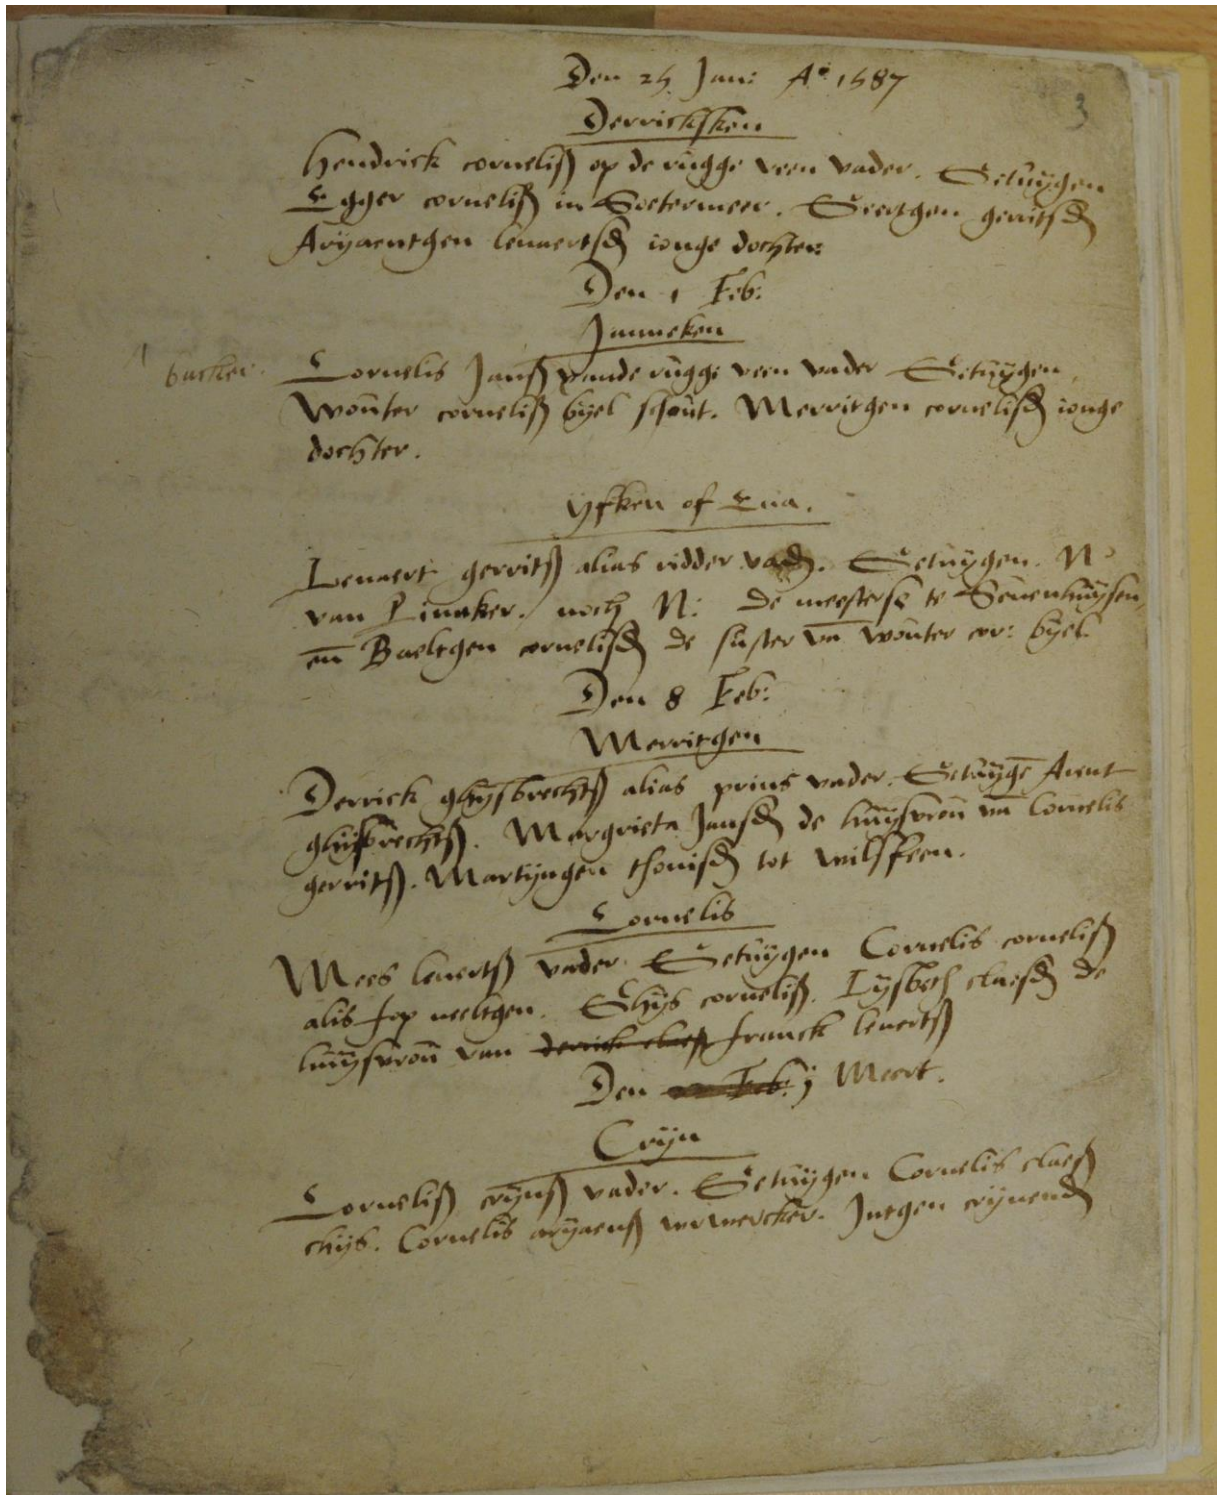 Den 25 Jan: A° 1587
3
Derricksken
Hendrick corneliß op de rugge veen vader. Getuÿgen
Egger corneliß in Soetermeer. Geertgen gerritsd
Arÿaentgen lenaertsd ionge dochter:
Den 1 Feb:
Janneken
backer. Cornelis Janß vande rugge veen vader Getuÿgen
Wouter corneliß bÿel schout. Merritgen cornelisd ionge
dochter.
ÿfken of Eua.
Lenaert gerritß alias ridder vad. Getuÿgen. N
van Pinaker. noch N: de meesterse te Seuenhuÿsen,
en Baeltgen cornelisd de suster va wouter cor: bÿel.
Den 8 Feb:
Merritgen
Derrick ghÿsbrechtß alias prins vader. Getuÿge Arent
ghÿsbrechtß. Margrieta Jansd de huÿsvrou va Cornelis
gerritß. Martÿngen thonisd tot wilsveen.
Cornelis
Mees leuertß vader. Getuÿgen Cornelis corneliß
alis Jop neeltgen. Ghÿs corneliß. Lÿsbeth claesd de
huÿsvrou van derrick claeß franck leuertß
Den Feb: j Meert.
Crÿn
Corneliß crÿnß vader. Getuÿgen Cornelis claeß
chÿs. Cornelis arÿaenß Jutgen crÿnend